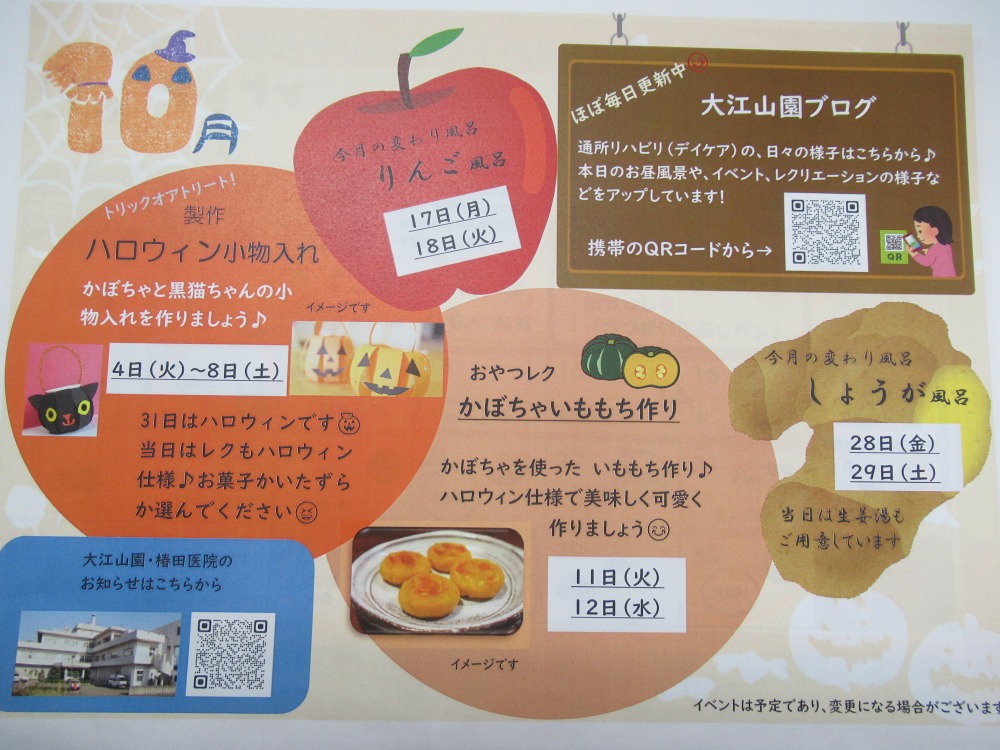 10月
今月の変わり風呂
りんご風呂
17日(月)
18日(火)
ほぼ毎日更新中
大江山園ブログ
通所リハビリ(デイケア)の、日々の様子はこちらから♪
本日のお昼風景や、イベント、レクリエーションの様子な
どをアップしています!
携帯のQRコードから→
QR
トリックオアトリート!
製作
ハロウィン小物入れ
かぼちゃと黒猫ちゃんの小
物入れを作りましょう♪
イメージです
4日(火)~8日(土)
31日はハロウィンです
当日はレクもハロウィン
仕様♪お菓子かいたずら
か選んでください
おやつレク
かぼちゃいももち作り
かぼちゃを使った いももち作り♪
ハロウィン仕様で美味しく可愛く
作りましょう
11日(火)
12日(水)
イメージです
今月の変わり風呂
しょうが風呂
28日(金)
29日(土)
当日は生姜湯も
ご用意しています
大江山園・椿田医院の
お知らせはこちらから
イベントは予定であり、変更になる場合がございます